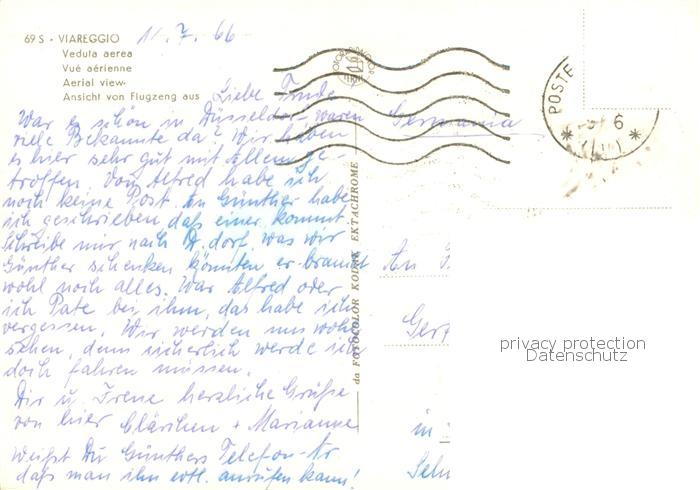 69 S - VIAREGGIO
Veduta aerea
Vué aérienne
Aerial view
Ansicht von Flugzeng aus
11.7.66
Liebe
War es schön in Düsseldorf - waren
viele Bekannte da? Wir haben
es hier sehr gut mit Allem ge-
troffen. Von Alfred habe ich
noch keine Post. An Günther habe
ich geschrieben daß einer kommt.
Schreibe mir nach D.dorf, was wir
Günther schenken könnten er braucht
wohl noch alles. War Alfred oder
ich Pate bei ihm, das habe ich
vergessen. Wir werden uns wohl
sehen, denn sicherlich werde ich
doch fahren müssen.
Dir u. Irene herzliche Grüße
von hier Clärchen + Marianne
Weißt Du Günthers Telefon-Nr.
daß man ihn evtl. anrufen kann!
da FOTOCOLOR KODAK EKTACHROME
POSTE
6
Germania
An
in
privacy protection
Datenschutz